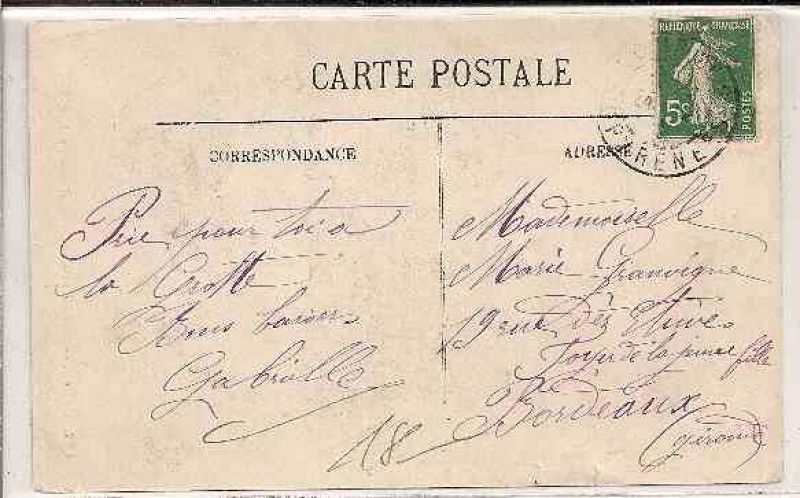 CARTE POSTALE
REPUBLIQUE FRANÇAISE
5c
POSTES
CORRESPONDANCE
Prie pour toi a
la Grotte
Bons baisers
Gabrielle
18
ADRESSE
Mademoiselle
Marie
19 rue des Etuves
Foyer de la jeune fille
Bordeaux
(Gironde)